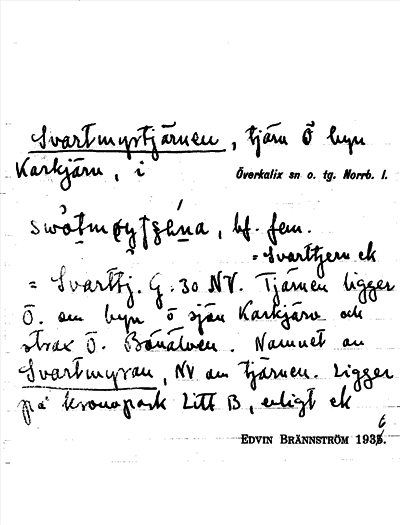 Svartmyrtjärnen, tjärn Ö byn
Karkjärn, i Överkalix sn o. tg. Norrb. l.
bf. fem.
= Svarttjern ek
= Svarttj. G:30 NV. Tjärnen ligger
Ö. om byn o sjön Karkjärv och
strax Ö. Bönälven. Namnet av
Svartmyran, NV om tjärnen. Ligger
på kronopark Litt B, enligt ek
EDVIN BRÄNNSTRÖM 1936.